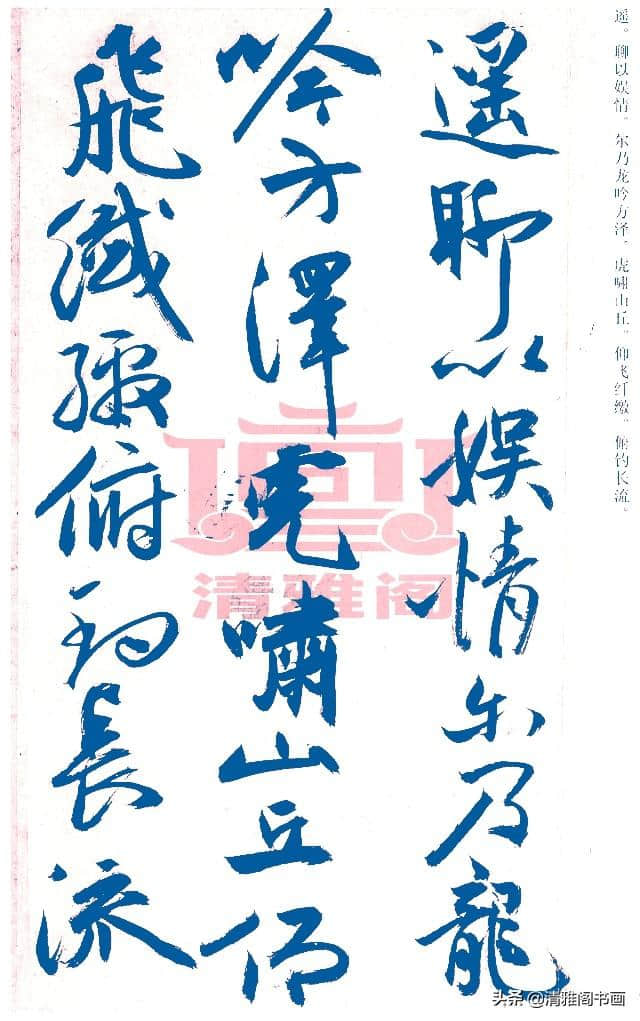 遥。聊以娱情。尔乃龙吟方泽。虎啸山丘。仰飞纤缴。俯钓长流。
遥聊以娱情尔乃龍
吟方澤虎嘯山丘仰
飛纖繳俯钓長流
清雅阁
头条 @清雅阁书画